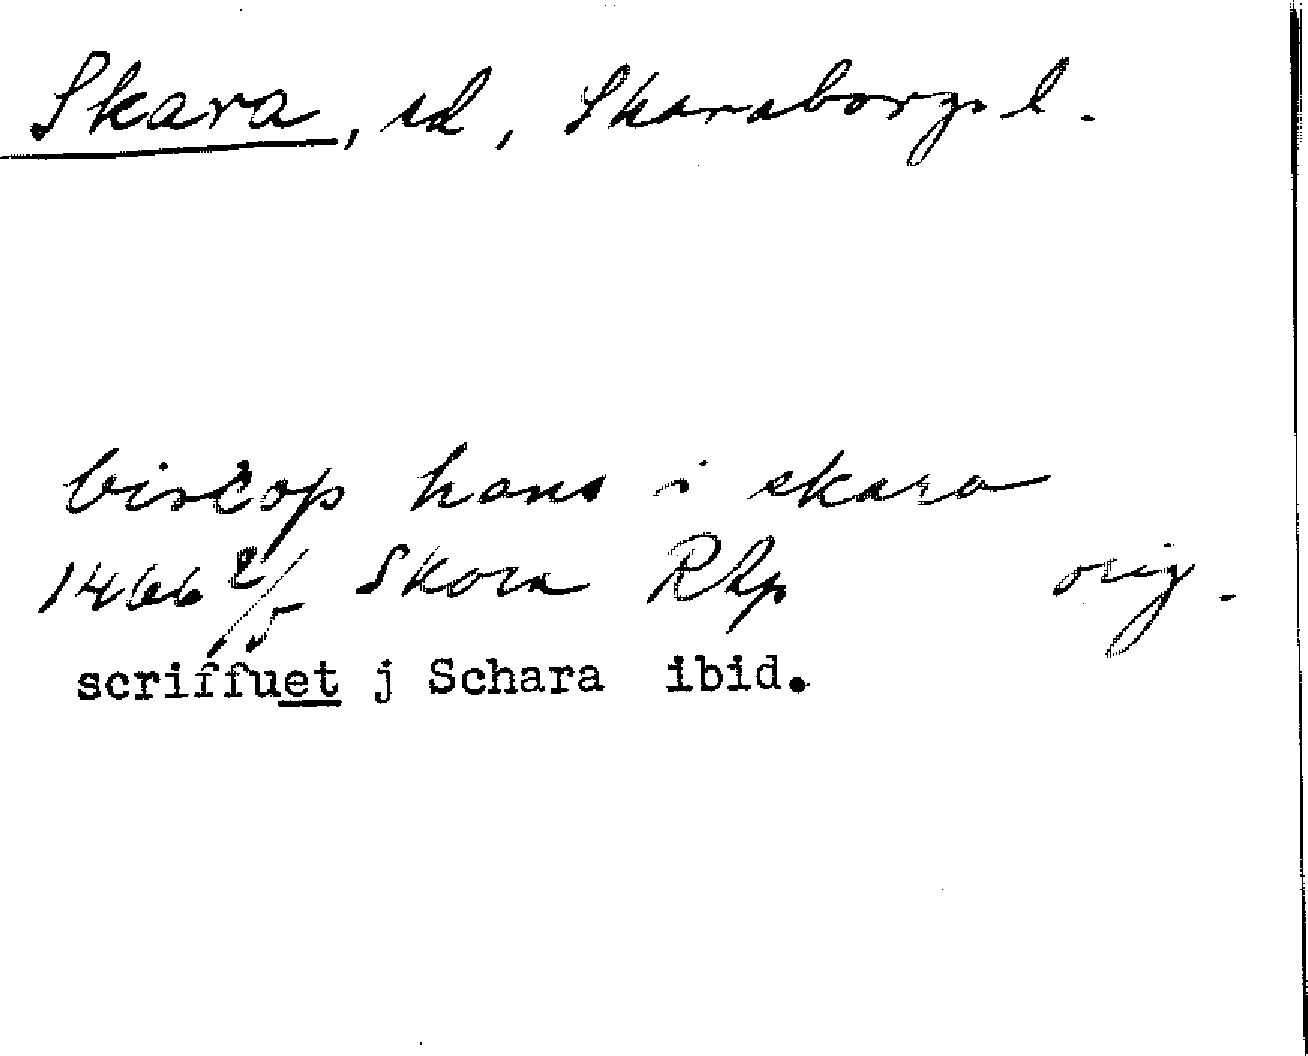 Skara, sd, Skaraborgs l.
biscop hans i skara
1466 2/5 Skara RAp orig.
scriffuet j Schara ibid.